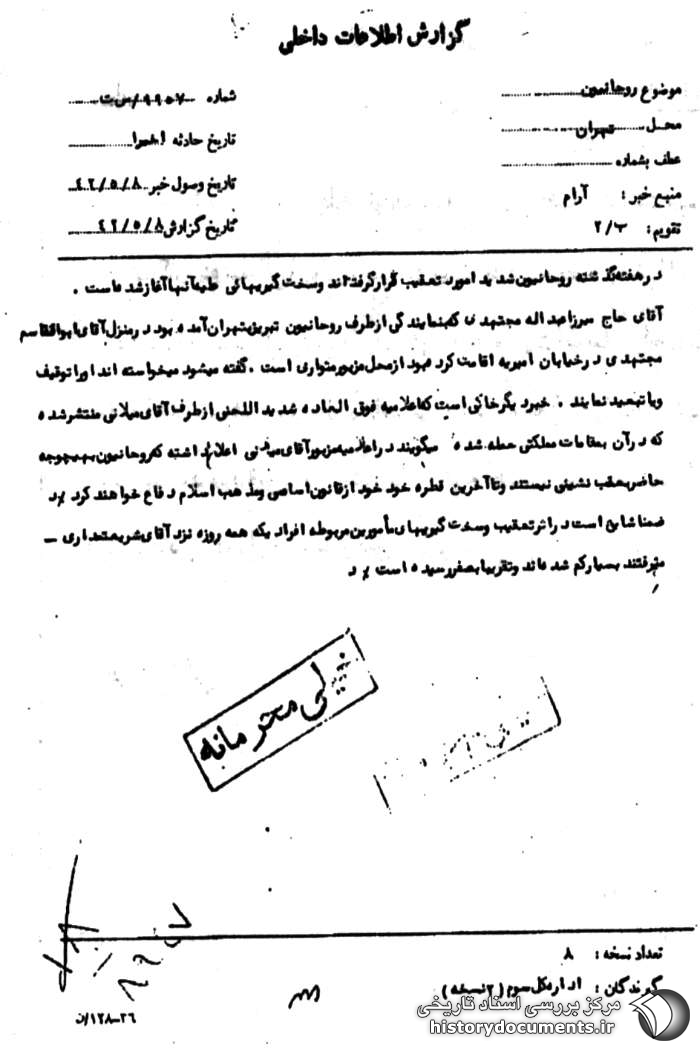 گزارش اطلاعات داخلی
موضوع روحانیون
شماره ۹۹۵۷/س ت
محل تهران
تاریخ حادثه اخیرا
عطف بشماره
تاریخ وصول خبر ۴۲/۵/۸
منبع خبر : آرام
تاریخ گزارش ۴۲/۵/۸
تقویم : ۲/۳
در هفته گذشته روحانیون شدیدا مورد تعقیب قرار گرفته اند و سخت گیریهائی علیه آنها آغاز شده است .
آقای حاج میرزا عبداله مجتهدی که بنمایندگی از طرف روحانیون تبریز بتهران آمده بود در منزل آقای ابوالقاسم
مجتهدی در خیابان امیریه اقامت کرده بود از محل مزبور متواری است . گفته میشود میخواسته اند او را توقیف
و یا تبعید نمایند . خبر دیگر حاکی است که اعلامیه فوق العاده شدید اللحنی از طرف آقای میلانی منتشر شده
که در آن بمقامات مملکتی حمله شده میگویند در اعلامیه مزبور آقای میلانی اعلام داشته که روحانیون بهیچوجه
حاضر بعقب نشینی نیستند و تا آخرین قطره خود از قانون اساسی و مذهب اسلام دفاع خواهند کرد
ضمنا شایع است در اثر تعقیب و سخت گیریهای مأمورین مربوطه افرادیکه همه روزه نزد آقای شریعتمداری ـ
میرفتند بسیار کم شده اند و تقریبا بصفر رسیده است
خیلی محرمانه
تعداد نسخه : ۸
گیرندگان : اداره کل سوم (۲ نسخه)
۱۲۸-۲۶/ن
مرکز بررسی اسناد تاریخی
historydocuments.ir